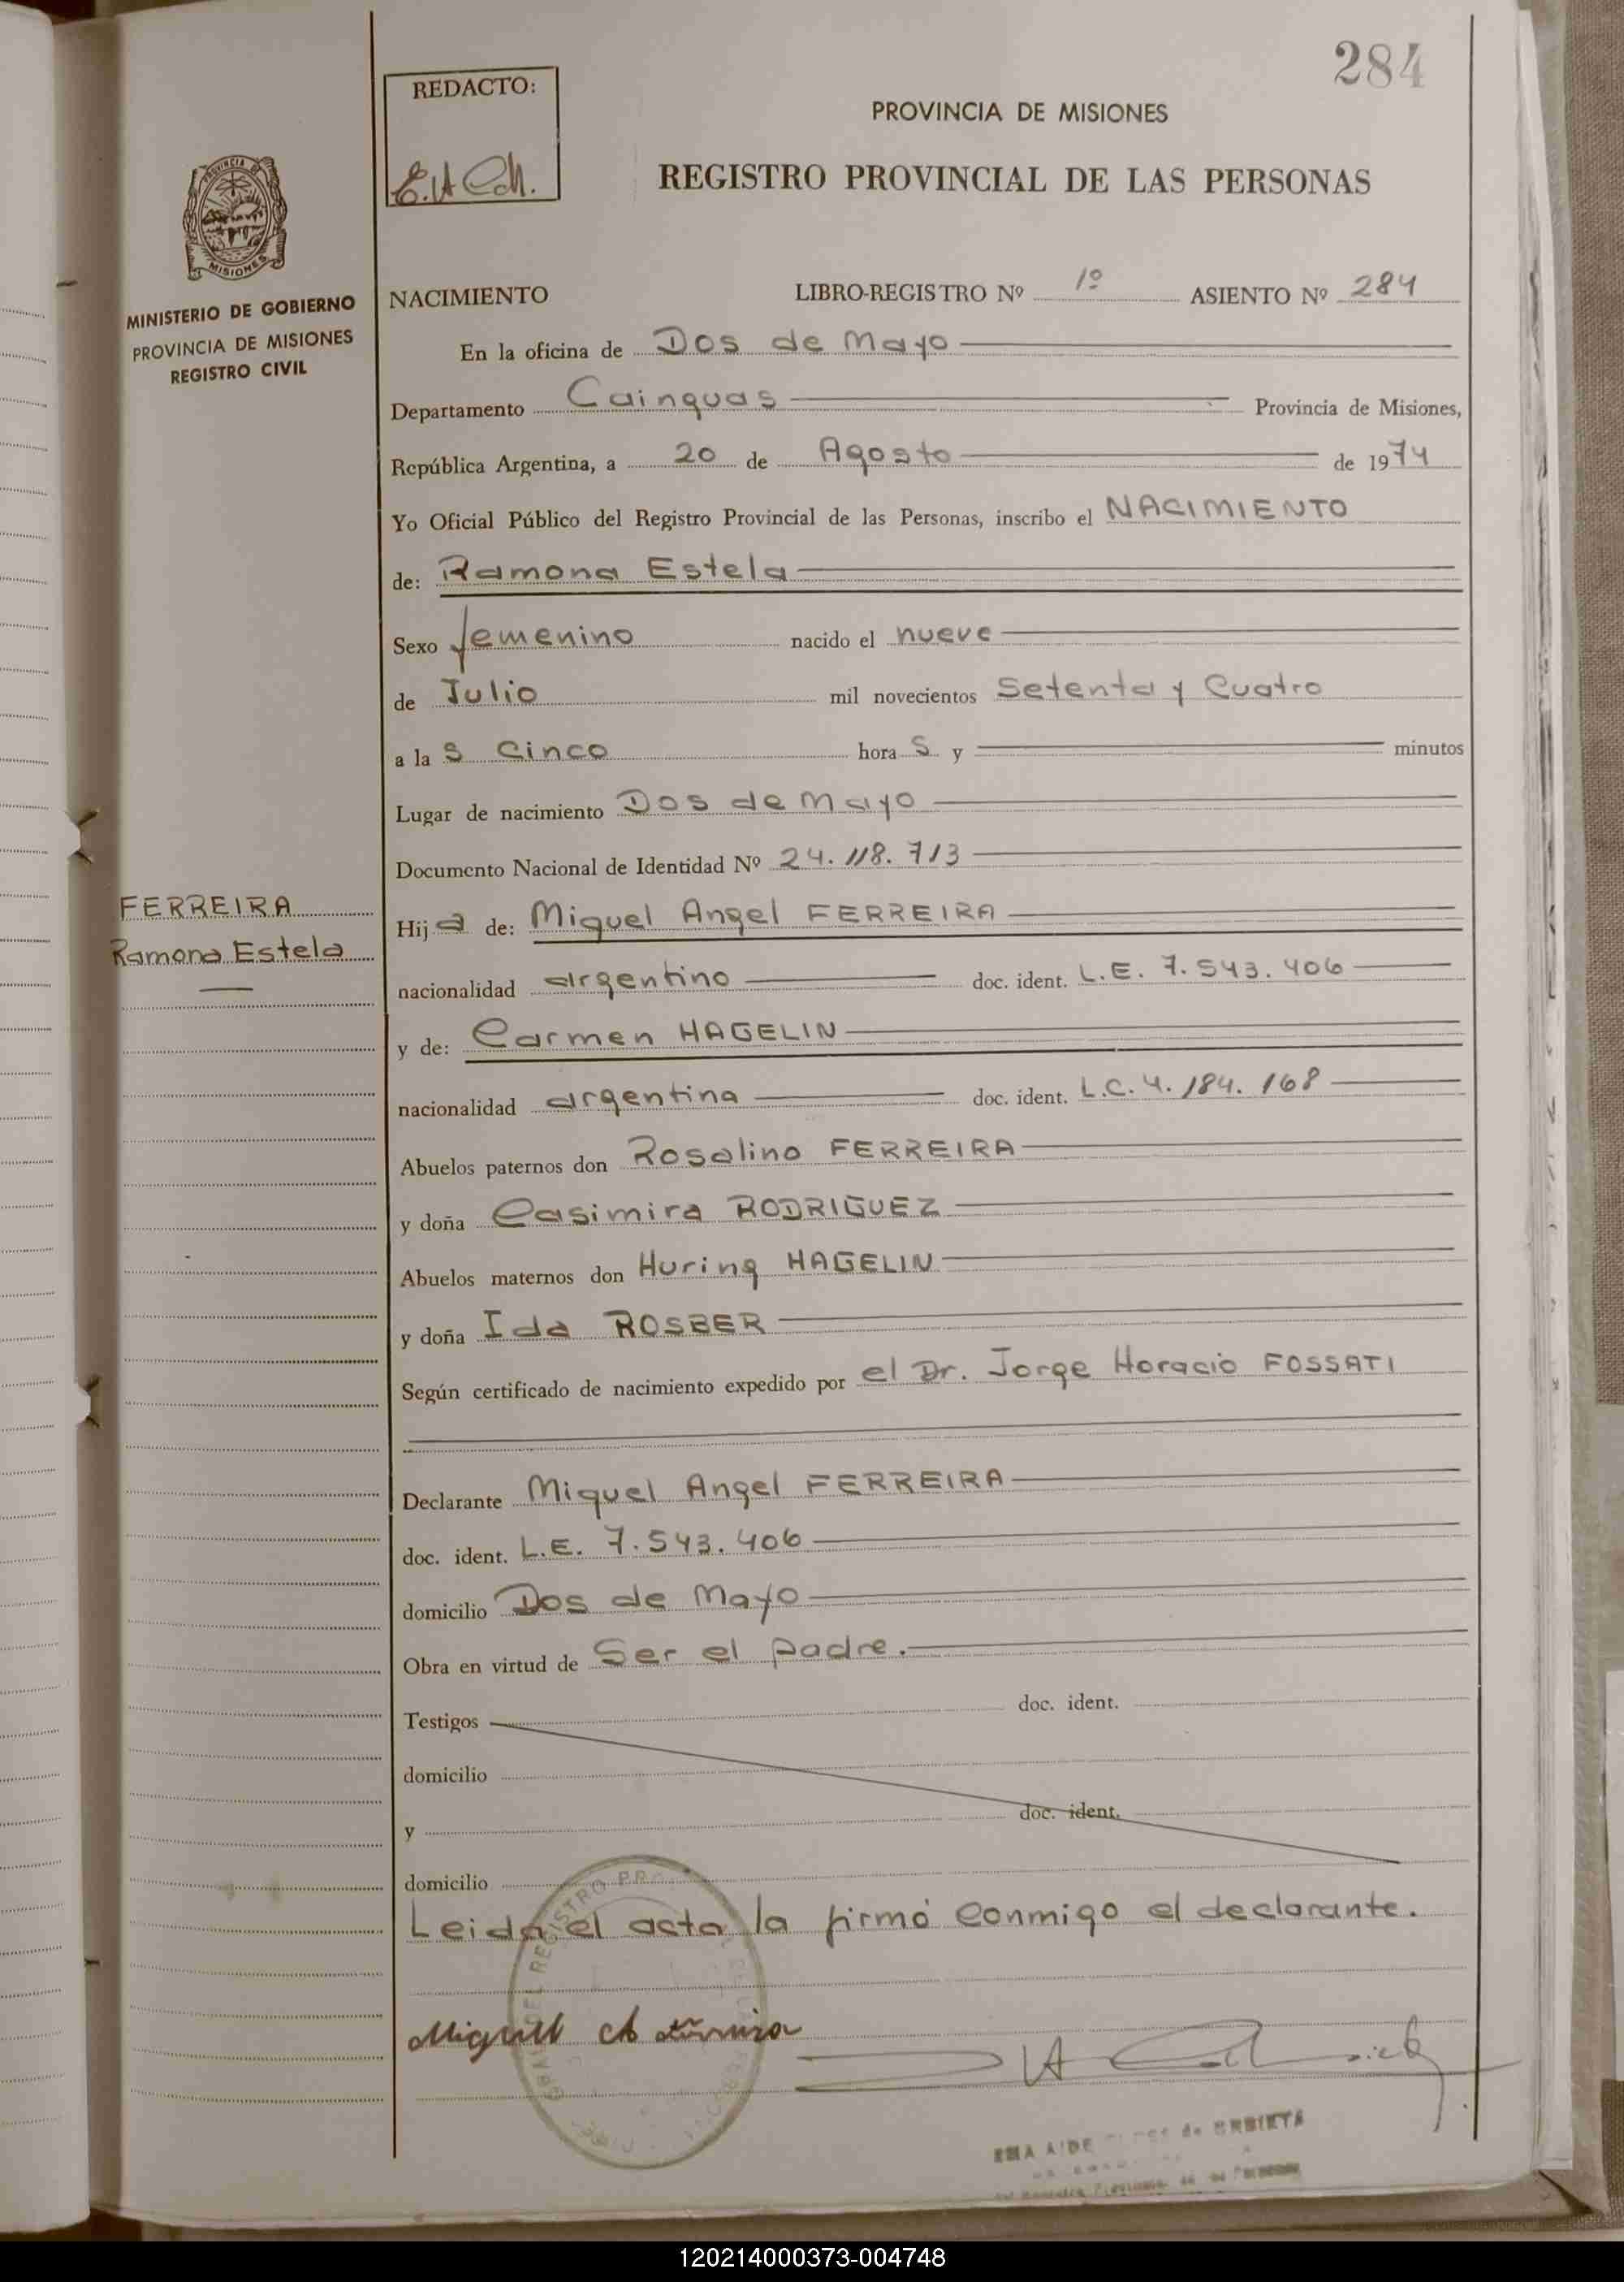 284
REDACTO:
E.H Ch.
PROVINCIA DE MISIONES
REGISTRO PROVINCIAL DE LAS PERSONAS
PROVINCIA DE
MISIONES
MINISTERIO DE GOBIERNO
PROVINCIA DE MISIONES
REGISTRO CIVIL
NACIMIENTO LIBRO-REGISTRO Nº 1º ASIENTO Nº 284
En la oficina de Dos de Mayo
Departamento Cainguas Provincia de Misiones,
República Argentina, a 20 de Agosto de 1974
Yo Oficial Público del Registro Provincial de las Personas, inscribo el NACIMIENTO
de: Ramona Estela
Sexo femenino nacido el nueve
de Julio mil novecientos Setenta y Cuatro
a la s Cinco hora s y minutos
Lugar de nacimiento Dos de Mayo
Documento Nacional de Identidad Nº 24.118.713
FERREIRA
Ramona Estela
Hij a de: Miguel Angel FERREIRA
nacionalidad argentino doc. ident. L.E. 7.543.406
y de: Carmen HAGELIN
nacionalidad argentina doc. ident. L.C. 4.184.168
Abuelos paternos don Rosalino FERREIRA
y doña Casimira RODRIGUEZ
Abuelos maternos don Huring HAGELIN
y doña Ida ROSBER
Según certificado de nacimiento expedido por el Dr. Jorge Horacio FOSSATI
Declarante Miguel Angel FERREIRA
doc. ident. L.E. 7.543.406
domicilio Dos de Mayo
Obra en virtud de Ser el padre.
Testigos doc. ident.
domicilio
y doc. ident.
domicilio
Leida el acta la firmó conmigo el declarante.
Miguel A Ferreira
120214000373-004748